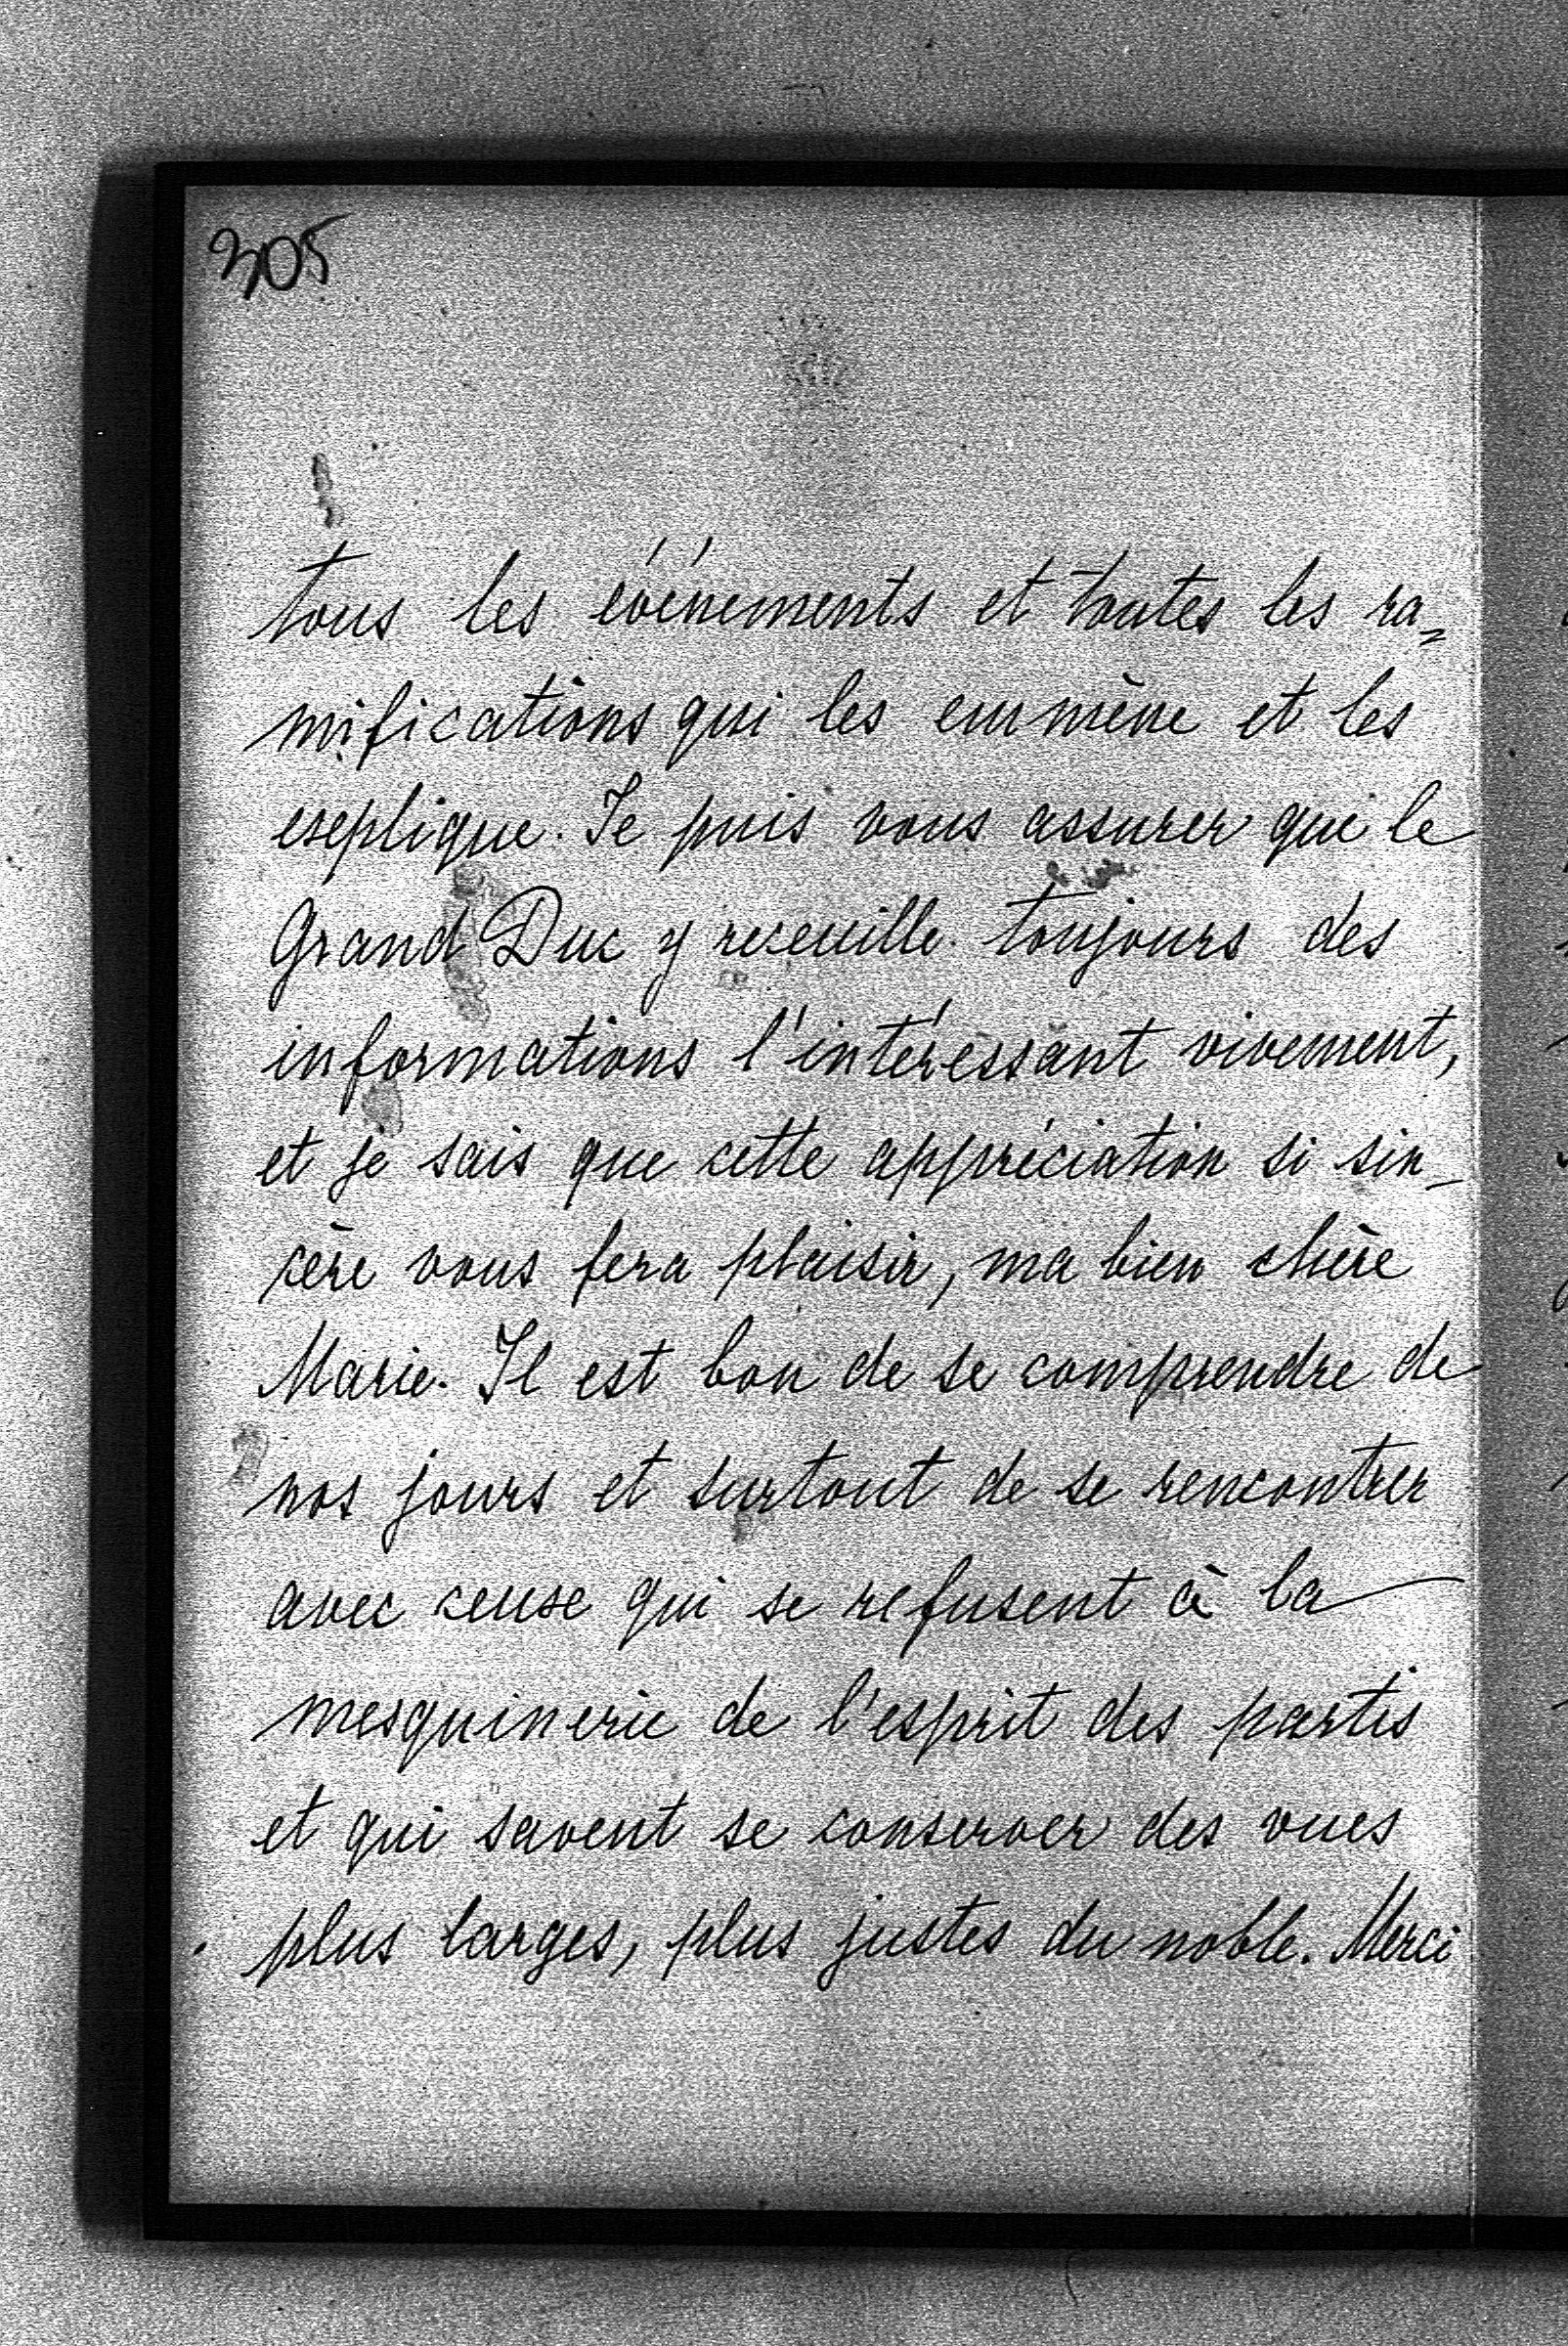 305
tous les événements et toutes les ra=
mifications qui les emmène et les
explique. Je puis vous assurer que le
Grand Duc y receuille toujours des
informations l'intéressant vivement,
et je sais que cette appréciation si sin_
cère vous fera plaisir, ma bien chère
Marie. Il est bon de se comprendre de
nos jours et surtout de se rencontrer
avec ceux qui se refusent à la
mesquinerie de l'esprit des partis
et qui savent se conserver des vues
plus larges, plus justes du noble. Merci